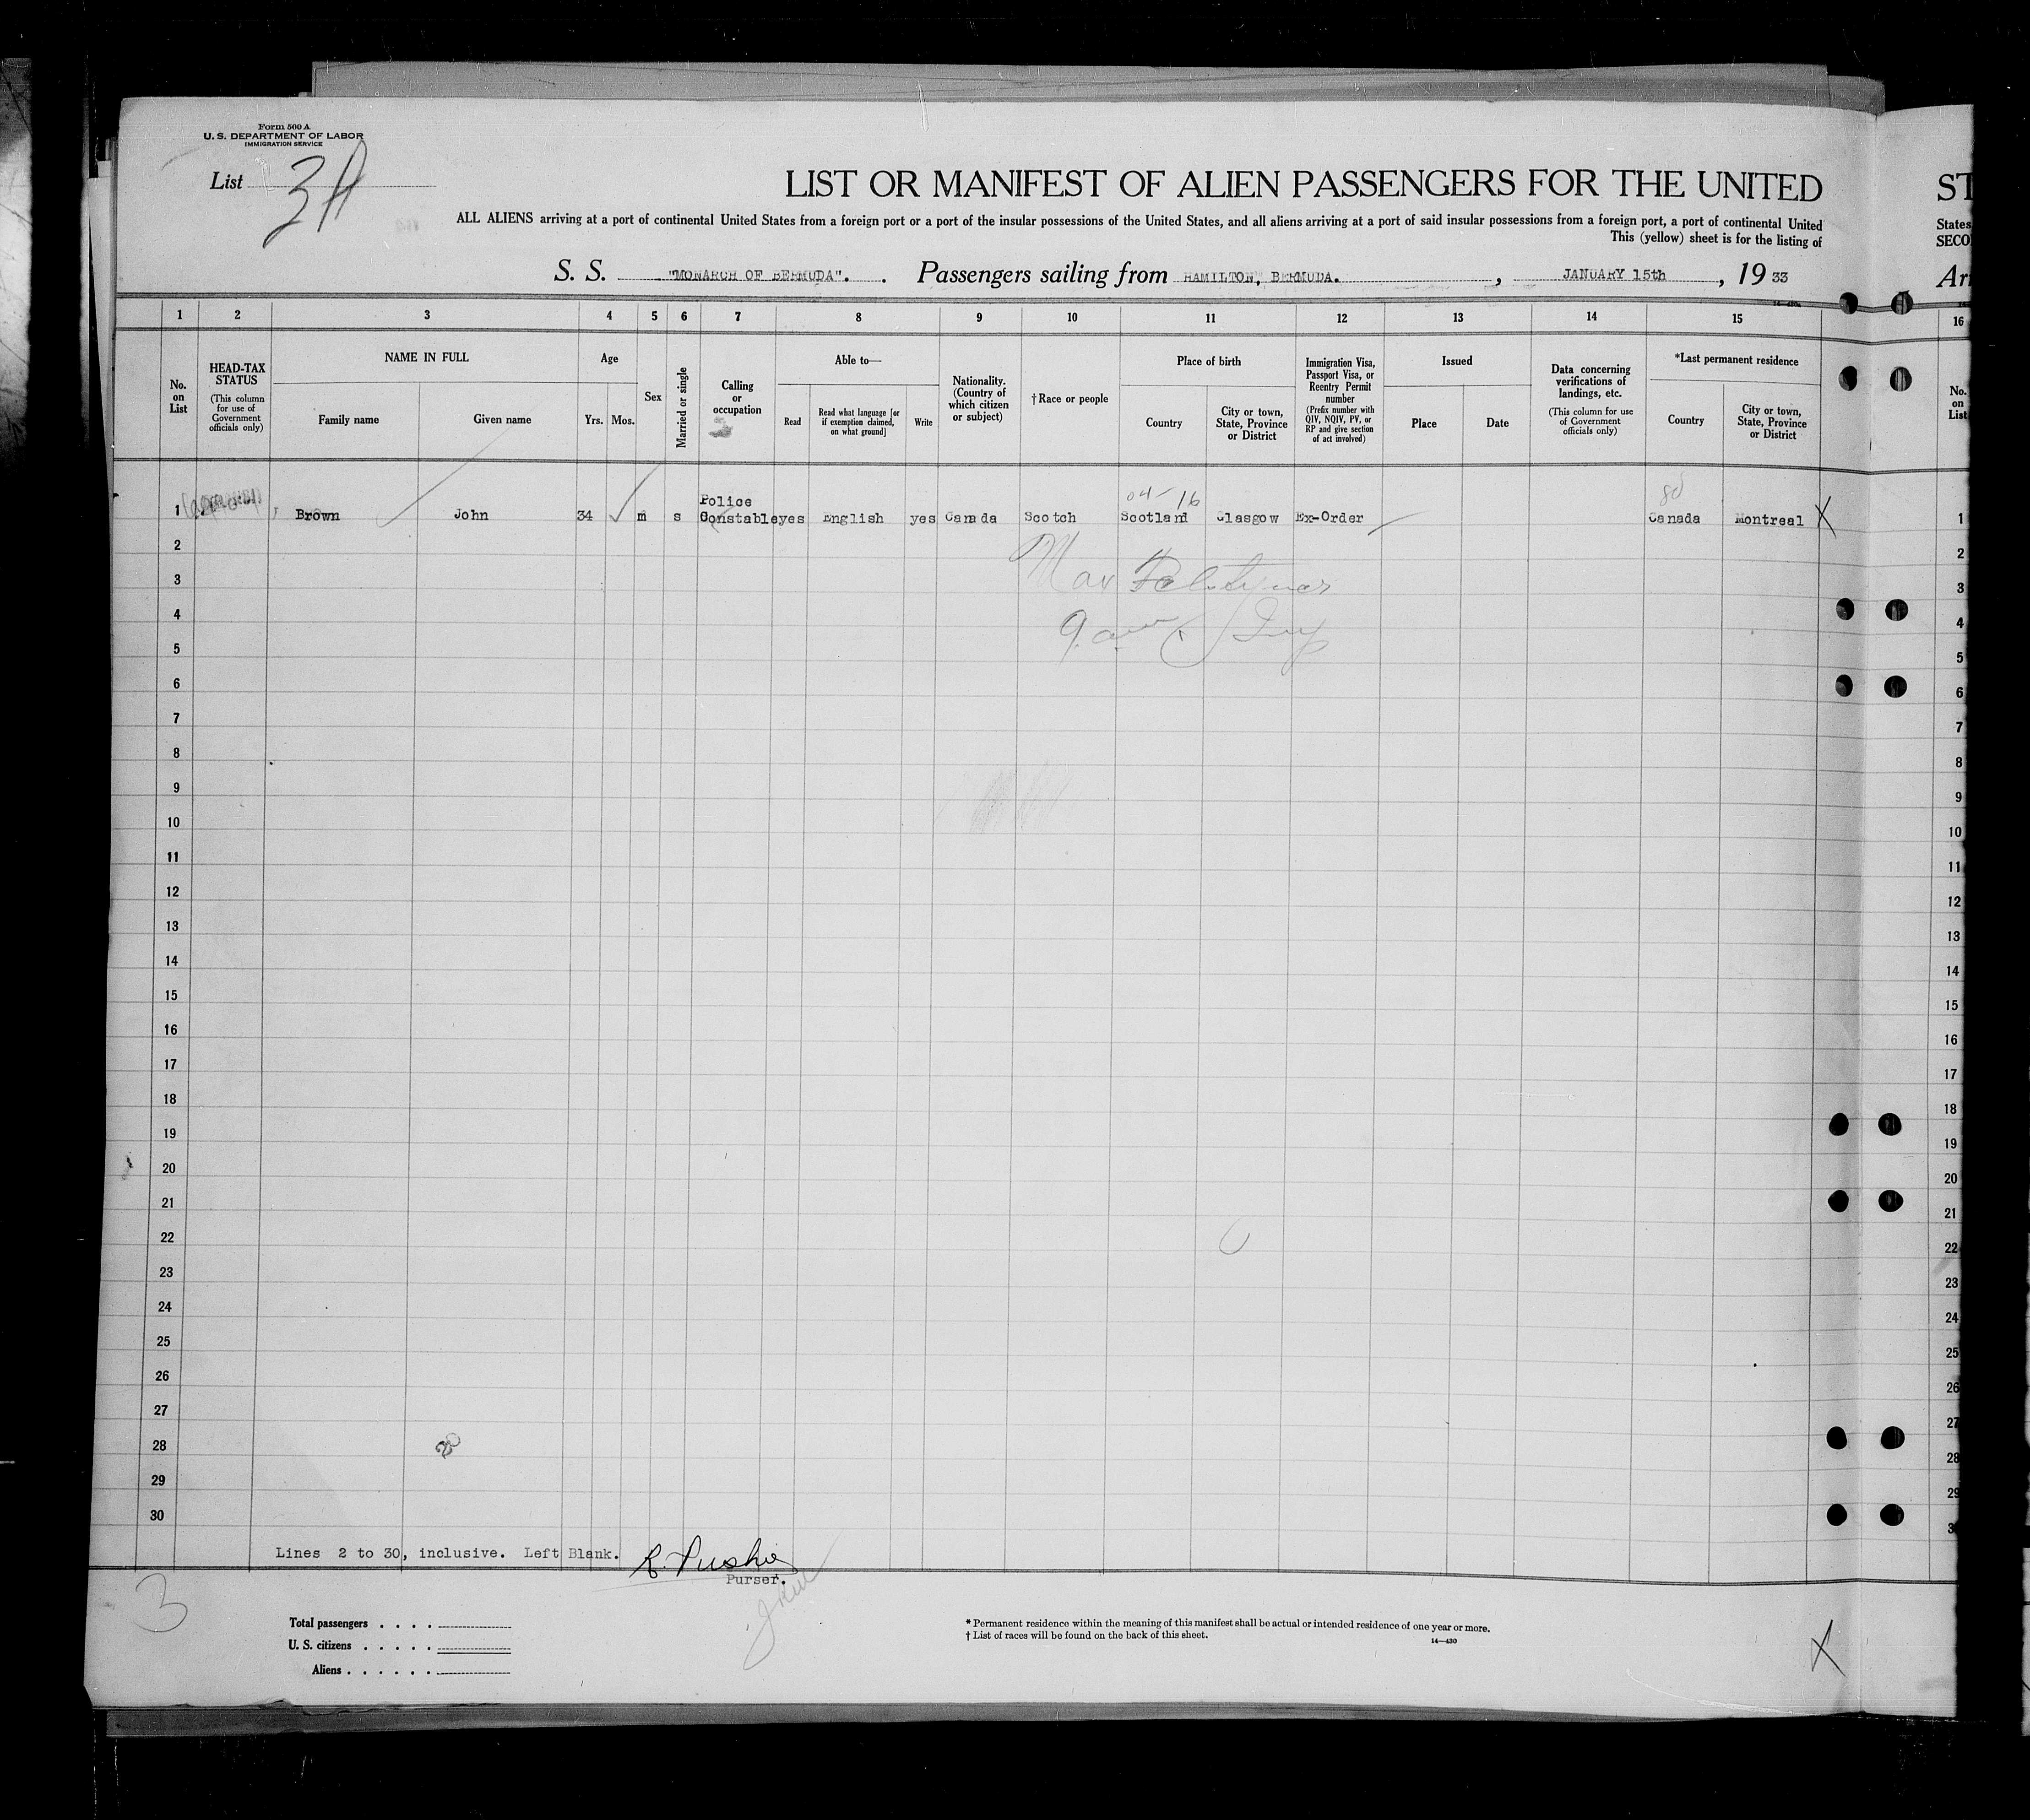 Form 500 A
U. S. DEPARTMENT OF LABOR
IMMIGRATION SERVICE
List 3A
LIST OR MANIFEST OF ALIEN PASSENGERS FOR THE UNITED
ST
ALL ALIENS arriving at a port of continental United States from a foreign port or a port of the insular possessions of the United States, and all aliens arriving at a port of said insular possessions from a foreign port, a port of continental United
States
This (yellow) sheet is for the listing of
SECO
S. S. "MONARCH OF BERMUDA". . Passengers sailing from HAMILTON, BERMUDA. , JANUARY 15th , 19 33
Arr
1 2 3 4 5 6 7 8 9 10 11 12 13 14 15 16
No. on List
HEAD-TAX STATUS
(This column for use of Government officials only)
NAME IN FULL
Family name Given name
Age
Yrs. Mos.
Sex
Married or single
Calling or occupation
Able to—
Read
Read what language [or if exemption claimed, on what ground]
Write
Nationality. (Country of which citizen or subject)
†Race or people
Place of birth
Country
City or town, State, Province or District
Immigration Visa, Passport Visa, or Reentry Permit number
(Prefix number with QIV, NQIV, PV, or RP and give section of act involved)
Issued
Place Date
Data concerning verifications of landings, etc.
(This column for use of Government officials only)
*Last permanent residence
Country
City or town, State, Province or District
No. on List
04-16
80
1 Brown John 34 m s Police Constable yes English yes Canada Scotch Scotland Glasgow Ex-Order Canada Montreal X 1
2 2
3 3
4 4
5 5
6 6
7 7
8 8
9 9
10 10
11 11
12 12
13 13
14 14
15 15
16 16
17 17
18 18
19 19
20 20
21 21
22 22
23 23
24 24
25 25
26 26
27 27
28 20 28
29 29
30 3
Lines 2 to 30, inclusive. Left Blank.
Purser.
3
Total passengers
U. S. citizens
Aliens
* Permanent residence within the meaning of this manifest shall be actual or intended residence of one year or more.
† List of races will be found on the back of this sheet.
14—430
X